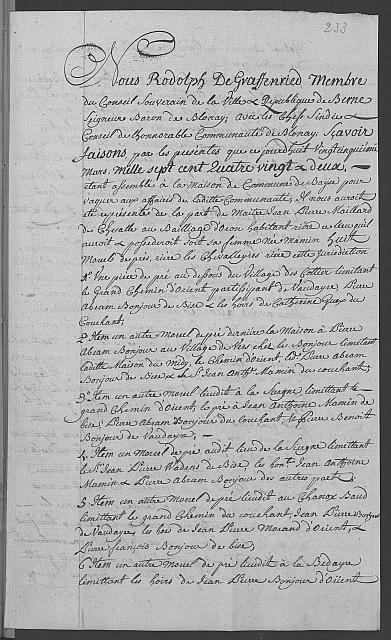 233
Nous Rodolph De Graffenried Membre
du Conseil Souverain de la Ville & Republique de Berne
Seigneur Baron de Blonay; avec les Chefs Sindic &
Conseil de l'honnorable Communauté de Blonay, Sçavoir
faisons par les presentes que ce jourdhuit vingtcinquieme
Mars, mille sept cent Quatre vingt & deux,
etant assemblé à la maison de Commune de Baye pour
vaquer aux affaires de laditte Communauté, Il nous auroit
été representé de la part de Maitre Jean Pierre Maillard
de Chesalle au Baillage d'Oron habitant riere ce lieu qu'il
auroit & possederoit soit sa femme née Mamin huit
Morcels de prés, riere les Chevalleyres riere cette Jurisdiction
1º Une piece de pré au dessous du Village des limittant
le Grand Chemin d'Orient Vaudayre Pierre
Abram Bonjour de Bise & les hoirs de Catherine
Couchant;
2º Item un autre Morcel de pré derniere la Maison à Pierre
Abram Bonjour au Village de Vers chez les Bonjour limittant
laditte Maison du Midy, le Chemin d'Orient, led. Pierre Abram
Bonjour de Bise & le Sr. Jean Anthe. Mamin du couchant;
3º Item un autre Morcel liudit à la Surgne, limittant le
grand Chemin d'Orient, le pré à Jean Anthoine Mamin de
bise, Pierre Abram Bonjour du Couchant, & Pierre Benoit
Bonjour de Vaudayre, —
4. Item un Morcel de pré audit lieu de la Surgne limittant
le Sr. Jean Pierre de Bise, les hont. Jean Anthoine
Mamin & Pierre Abram Bonjour des autres parts;
5. Item un autre Morcel de pré liudit au Chanox Baud
limittant le grand Chemin du couchant, Jean Pierre Bonjour
de Vaudayre, les hoirs de Jean Pierre Morand d'Orient, &
Pierre françois Bonjour de bise;
6 Item un autre Morcel de pré liudit à la Bedaye
limittant les hoirs de Jean Pierre Bonjour d'Orient